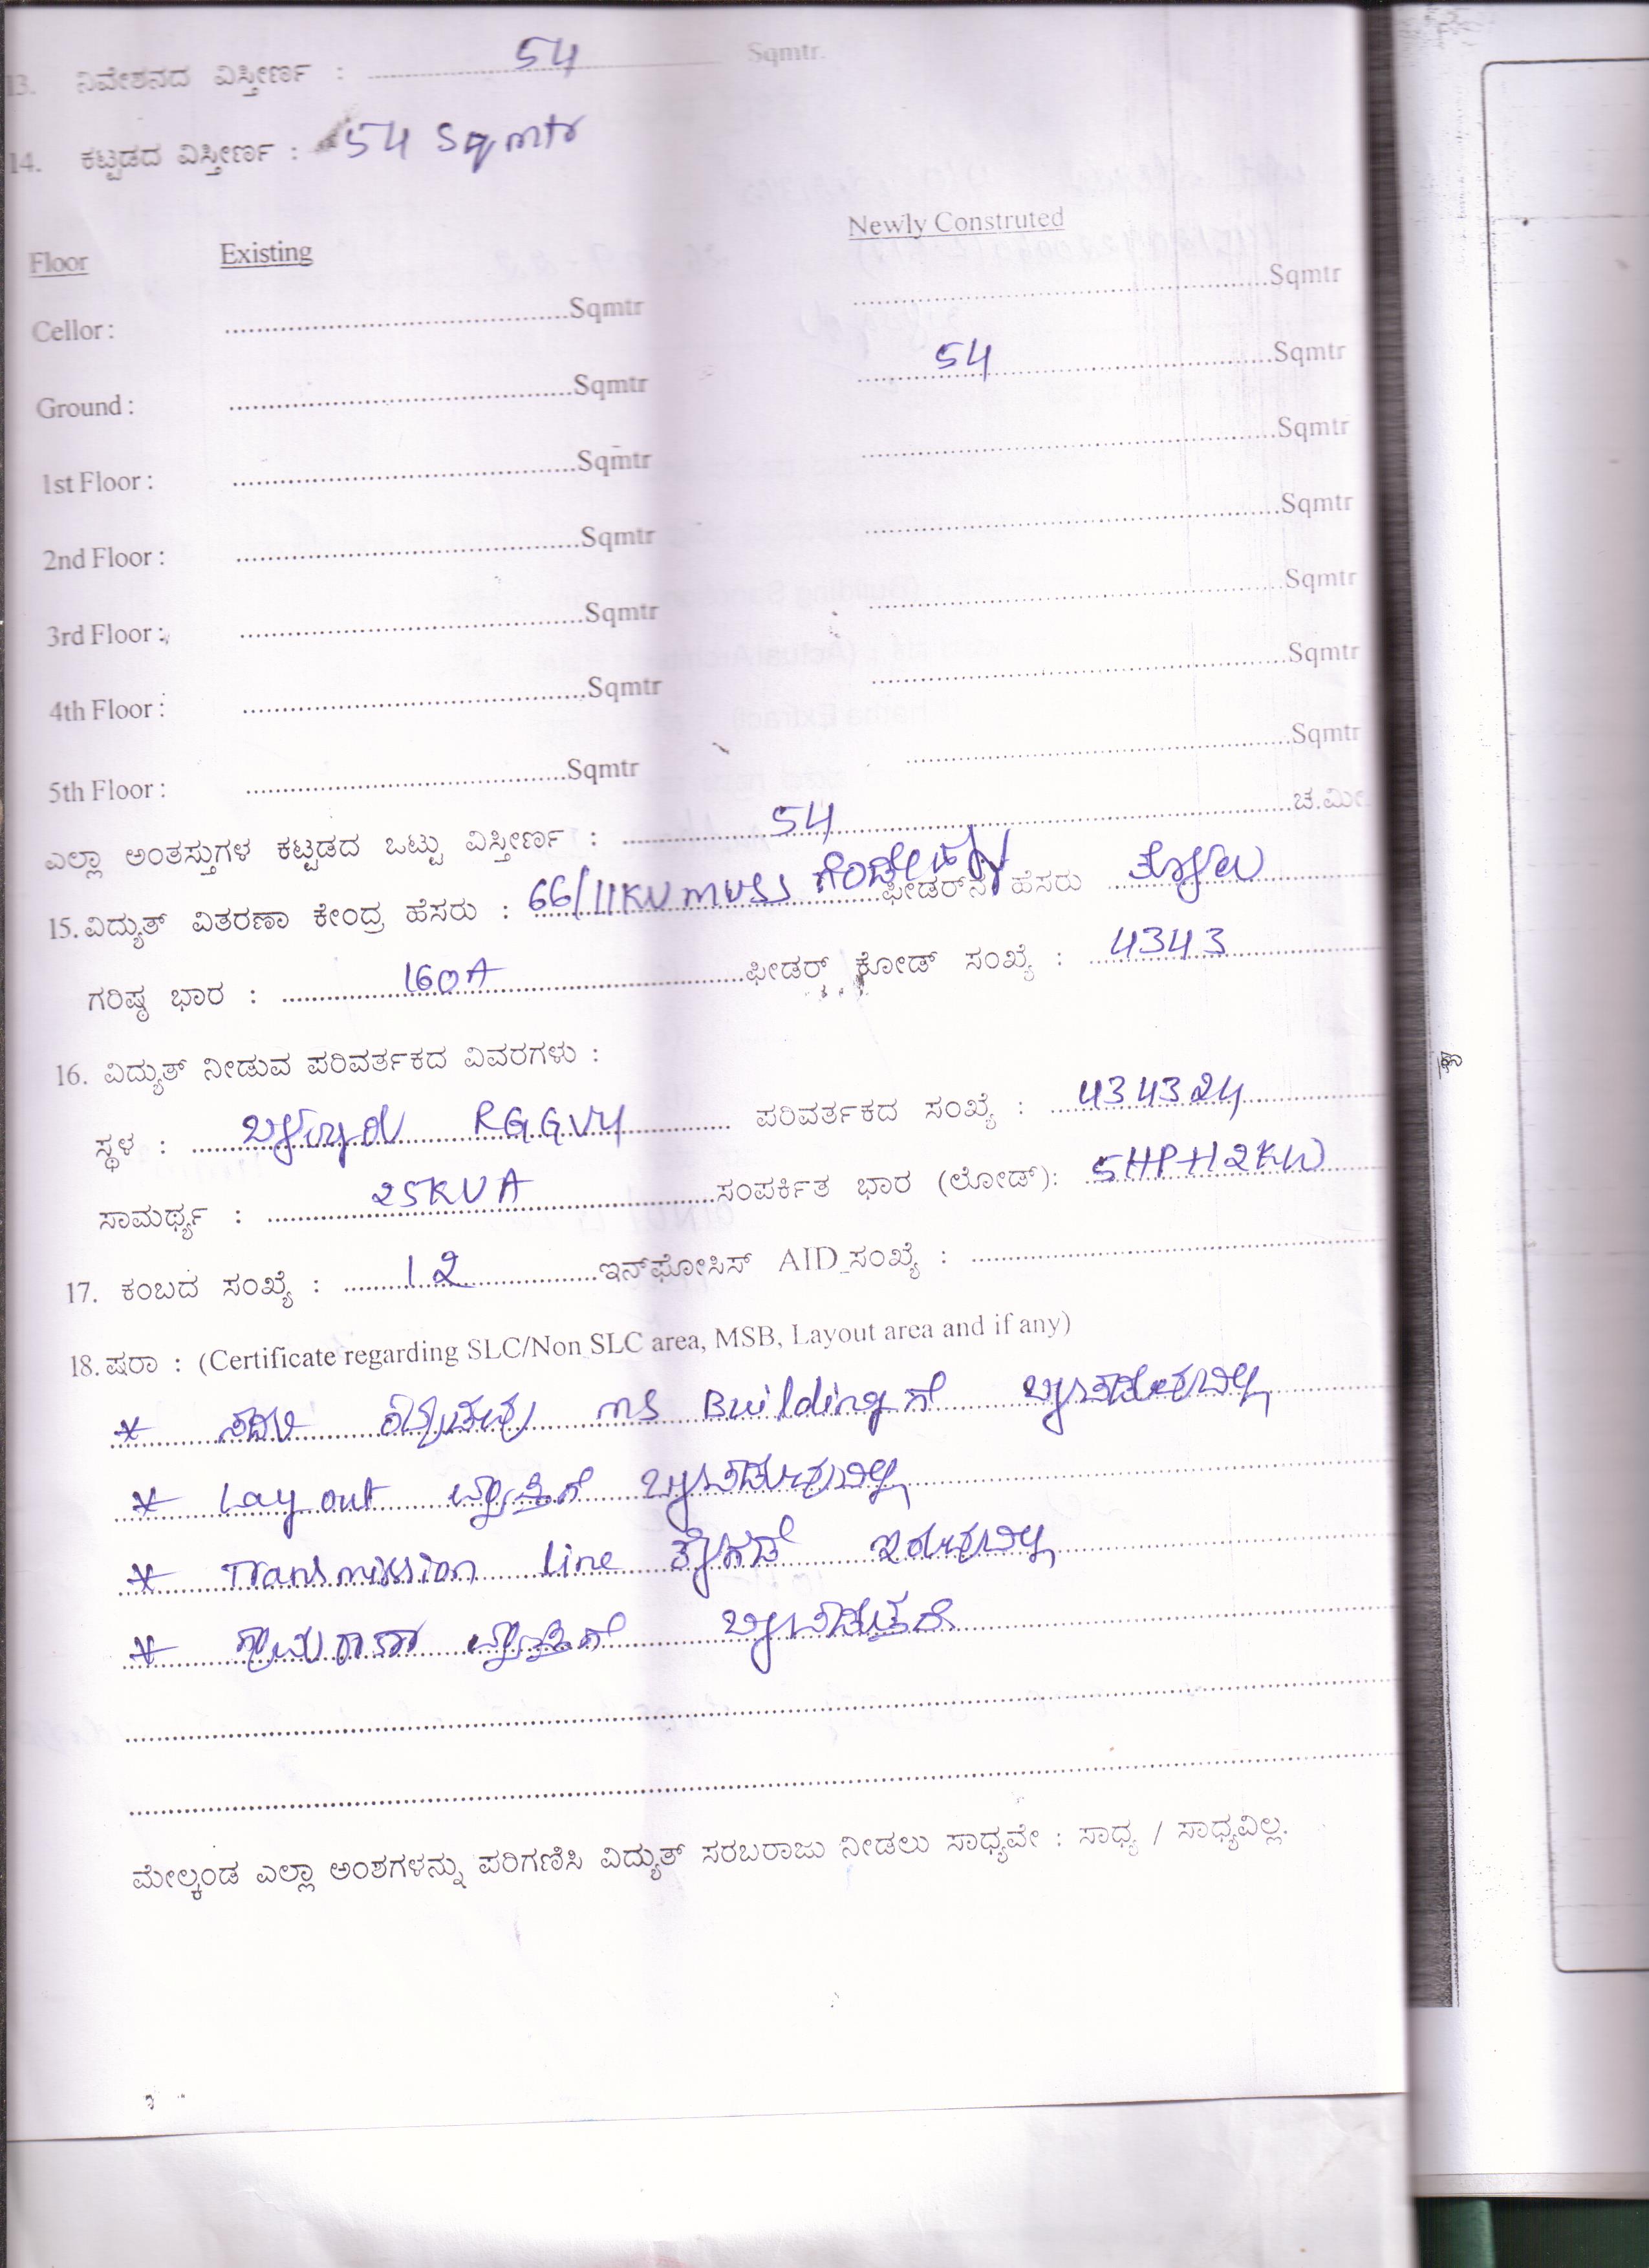 13. ನಿವೇಶನದ ವಿಸ್ತೀರ್ಣ : 54 Sqmtr.
14. ಕಟ್ಟಡದ ವಿಸ್ತೀರ್ಣ : 54 Sqmtr
Floor Existing Newly Construted
Cellor : Sqmtr Sqmtr
Ground : Sqmtr 54 Sqmtr
1st Floor : Sqmtr Sqmtr
2nd Floor : Sqmtr Sqmtr
3rd Floor : Sqmtr Sqmtr
4th Floor : Sqmtr Sqmtr
5th Floor : Sqmtr Sqmtr
ಎಲ್ಲಾ ಅಂತಸ್ತುಗಳ ಕಟ್ಟಡದ ಒಟ್ಟು ವಿಸ್ತೀರ್ಣ : 54 ಚ.ಮೀ
15. ವಿದ್ಯುತ್ ವಿತರಣಾ ಕೇಂದ್ರ ಹೆಸರು : 66/11KV MUSS ಫೀಡರ್‌ನ ಹೆಸರು
ಗರಿಷ್ಠ ಭಾರ : 160A ಫೀಡರ್ ಕೋಡ್ ಸಂಖ್ಯೆ : 4343
16. ವಿದ್ಯುತ್ ನೀಡುವ ಪರಿವರ್ತಕದ ವಿವರಗಳು :
ಸ್ಥಳ : RGGVY ಪರಿವರ್ತಕದ ಸಂಖ್ಯೆ : 434324
ಸಾಮರ್ಥ್ಯ : 25KVA ಸಂಪರ್ಕಿತ ಭಾರ (ಲೋಡ್): 5HP+12KW
17. ಕಂಬದ ಸಂಖ್ಯೆ : 12 ಇನ್‌ಫೋಸಿಸ್ AID ಸಂಖ್ಯೆ :
18. ಷರಾ : (Certificate regarding SLC/Non SLC area, MSB, Layout area and if any)
* ಸದರಿ ಕಟ್ಟಡವು MS Buildingಗೆ ಒಳಪಡುವುದಿಲ್ಲ
* Layout ವ್ಯಾಪ್ತಿಗೆ ಒಳಪಡುವುದಿಲ್ಲ
* Transmission line ಕೆಳಗಡೆ ಇರುವುದಿಲ್ಲ
* ಗ್ರಾಮಠಾಣಾ ವ್ಯಾಪ್ತಿಗೆ ಒಳಪಡುತ್ತದೆ
ಮೇಲ್ಕಂಡ ಎಲ್ಲಾ ಅಂಶಗಳನ್ನು ಪರಿಗಣಿಸಿ ವಿದ್ಯುತ್ ಸರಬರಾಜು ನೀಡಲು ಸಾಧ್ಯವೇ : ಸಾಧ್ಯ / ಸಾಧ್ಯವಿಲ್ಲ.